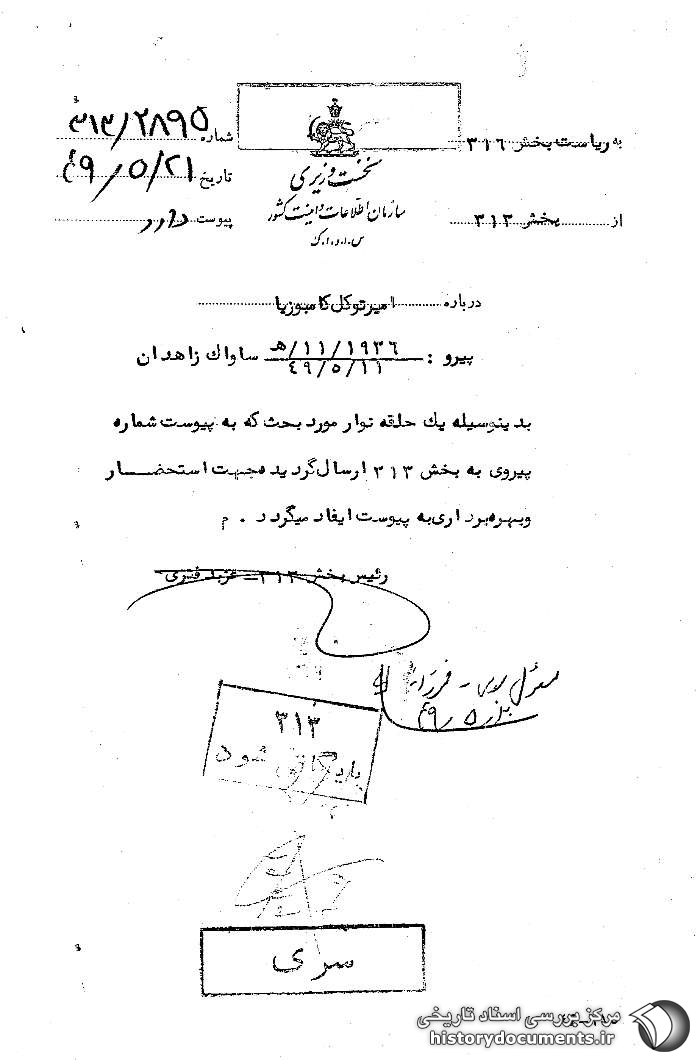 به ریاست بخش ۳۱۶
شماره ۳۱۳/۲۸۹۵
نخست وزیری
تاریخ ۴۹/۵/۲۱
سازمان اطلاعات و امنیت کشور
از بخش ۳۱۳
پیوست دارد
س.ا.و.ا.ک
درباره امیرتوکل کامبوزیا
پیرو : ۱۱/۱۹۳۶/هـ ساواک زاهدان
۴۹/۵/۱۱
بدینوسیله یک حلقه نوار مورد بحث که به پیوست شماره
پیروی به بخش ۳۱۳ ارسال گردیده جهت استحضار
وبهره‌برداری به پیوست ایفاد میگردد . م
رئیس بخش ۳۱۳ –
۳۱۳
شود
سری
مرکز بررسی اسناد تاریخی
historydocuments.ir